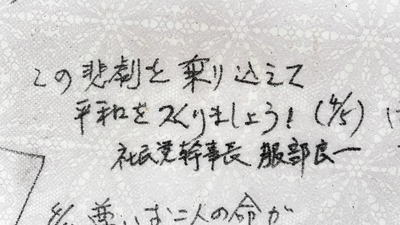 この悲劇を乗り込えて
平和をつくりましょう！(4/5)
社民党幹事長 服部良一
尊いお二人の命が